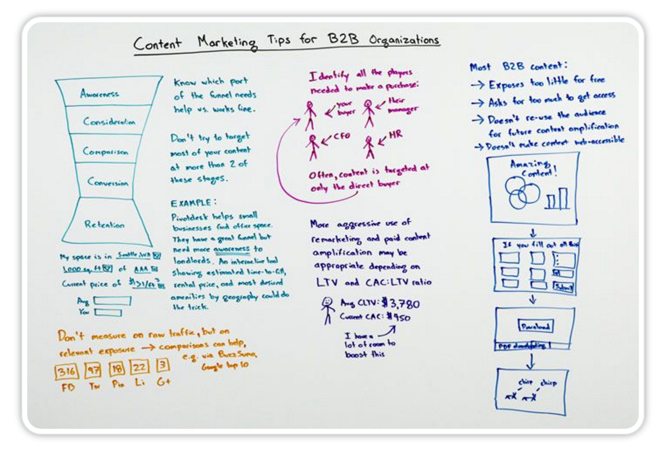 Content Marketing Tips for B2B Organizations
Awareness
Consideration
Comparison
Conversion
Retention
My space is in Seattle, WA
1,000 sq. ft of AAA
Current price of $31/ft²
Avg
You
Know which part
of the funnel needs
help vs. works fine.
Don't try to target
most of your content
at more than 2 of
these stages.
EXAMPLE:
Pivotdesk helps small
businesses find office space.
They have a great funnel but
need more awareness to
landlords. An interactive tool
showing estimated time-to-fill,
rental price, and most desired
amenities by geography could do
the trick.
Don't measure on raw traffic, but on
relevant exposure → comparisons can help,
e.g. via BuzzSumo,
Google top 10
316 97 18 22 3
FB Tw Pin Li G+
Identify all the players
needed to make a purchase:
your
buyer
their
manager
CFO
HR
Often, content is targeted at
only the direct buyer
More aggressive use of
remarketing and paid content
amplification may be
appropriate depending on
LTV and CAC:LTV ratio
Avg CLTV: $3,780
Current CAC: $950
I have a
lot of room to
boost this
Most B2B content:
→ Exposes too little for free
→ Asks for too much to get access
→ Doesn't re-use the audience
for future content amplification
→ Doesn't make content web-accessible
Amazing
Content!
If you fill out all this
Submit
Download
PDF downloading
chirp chirp